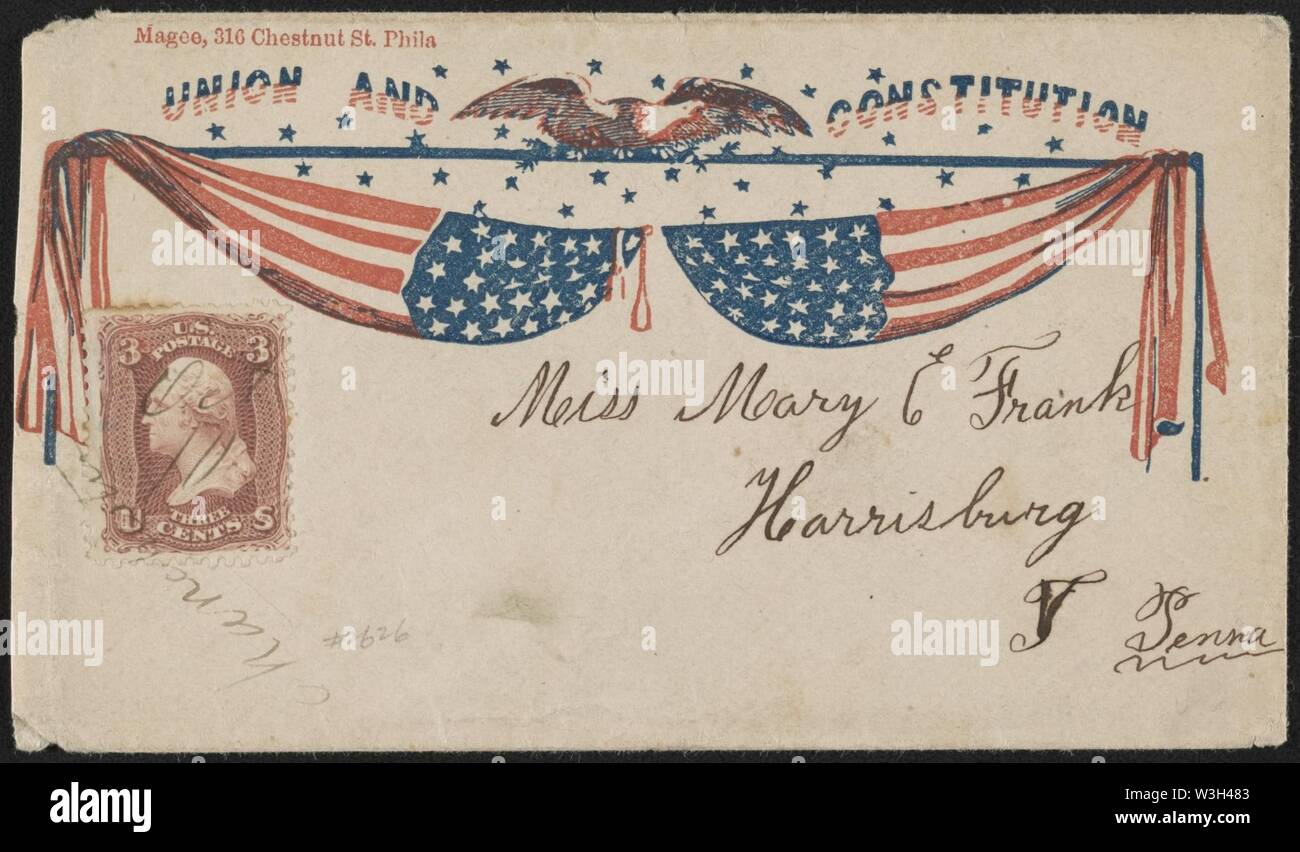 Magee, 316 Chestnut St. Phila
UNION AND CONSTITUTION
U.S.
POSTAGE
3 3
THREE
CENTS
U S
Miss Mary E Frank
Harrisburg
Penna
#2626
alamy
Image ID: W3H483
www.alamy.com